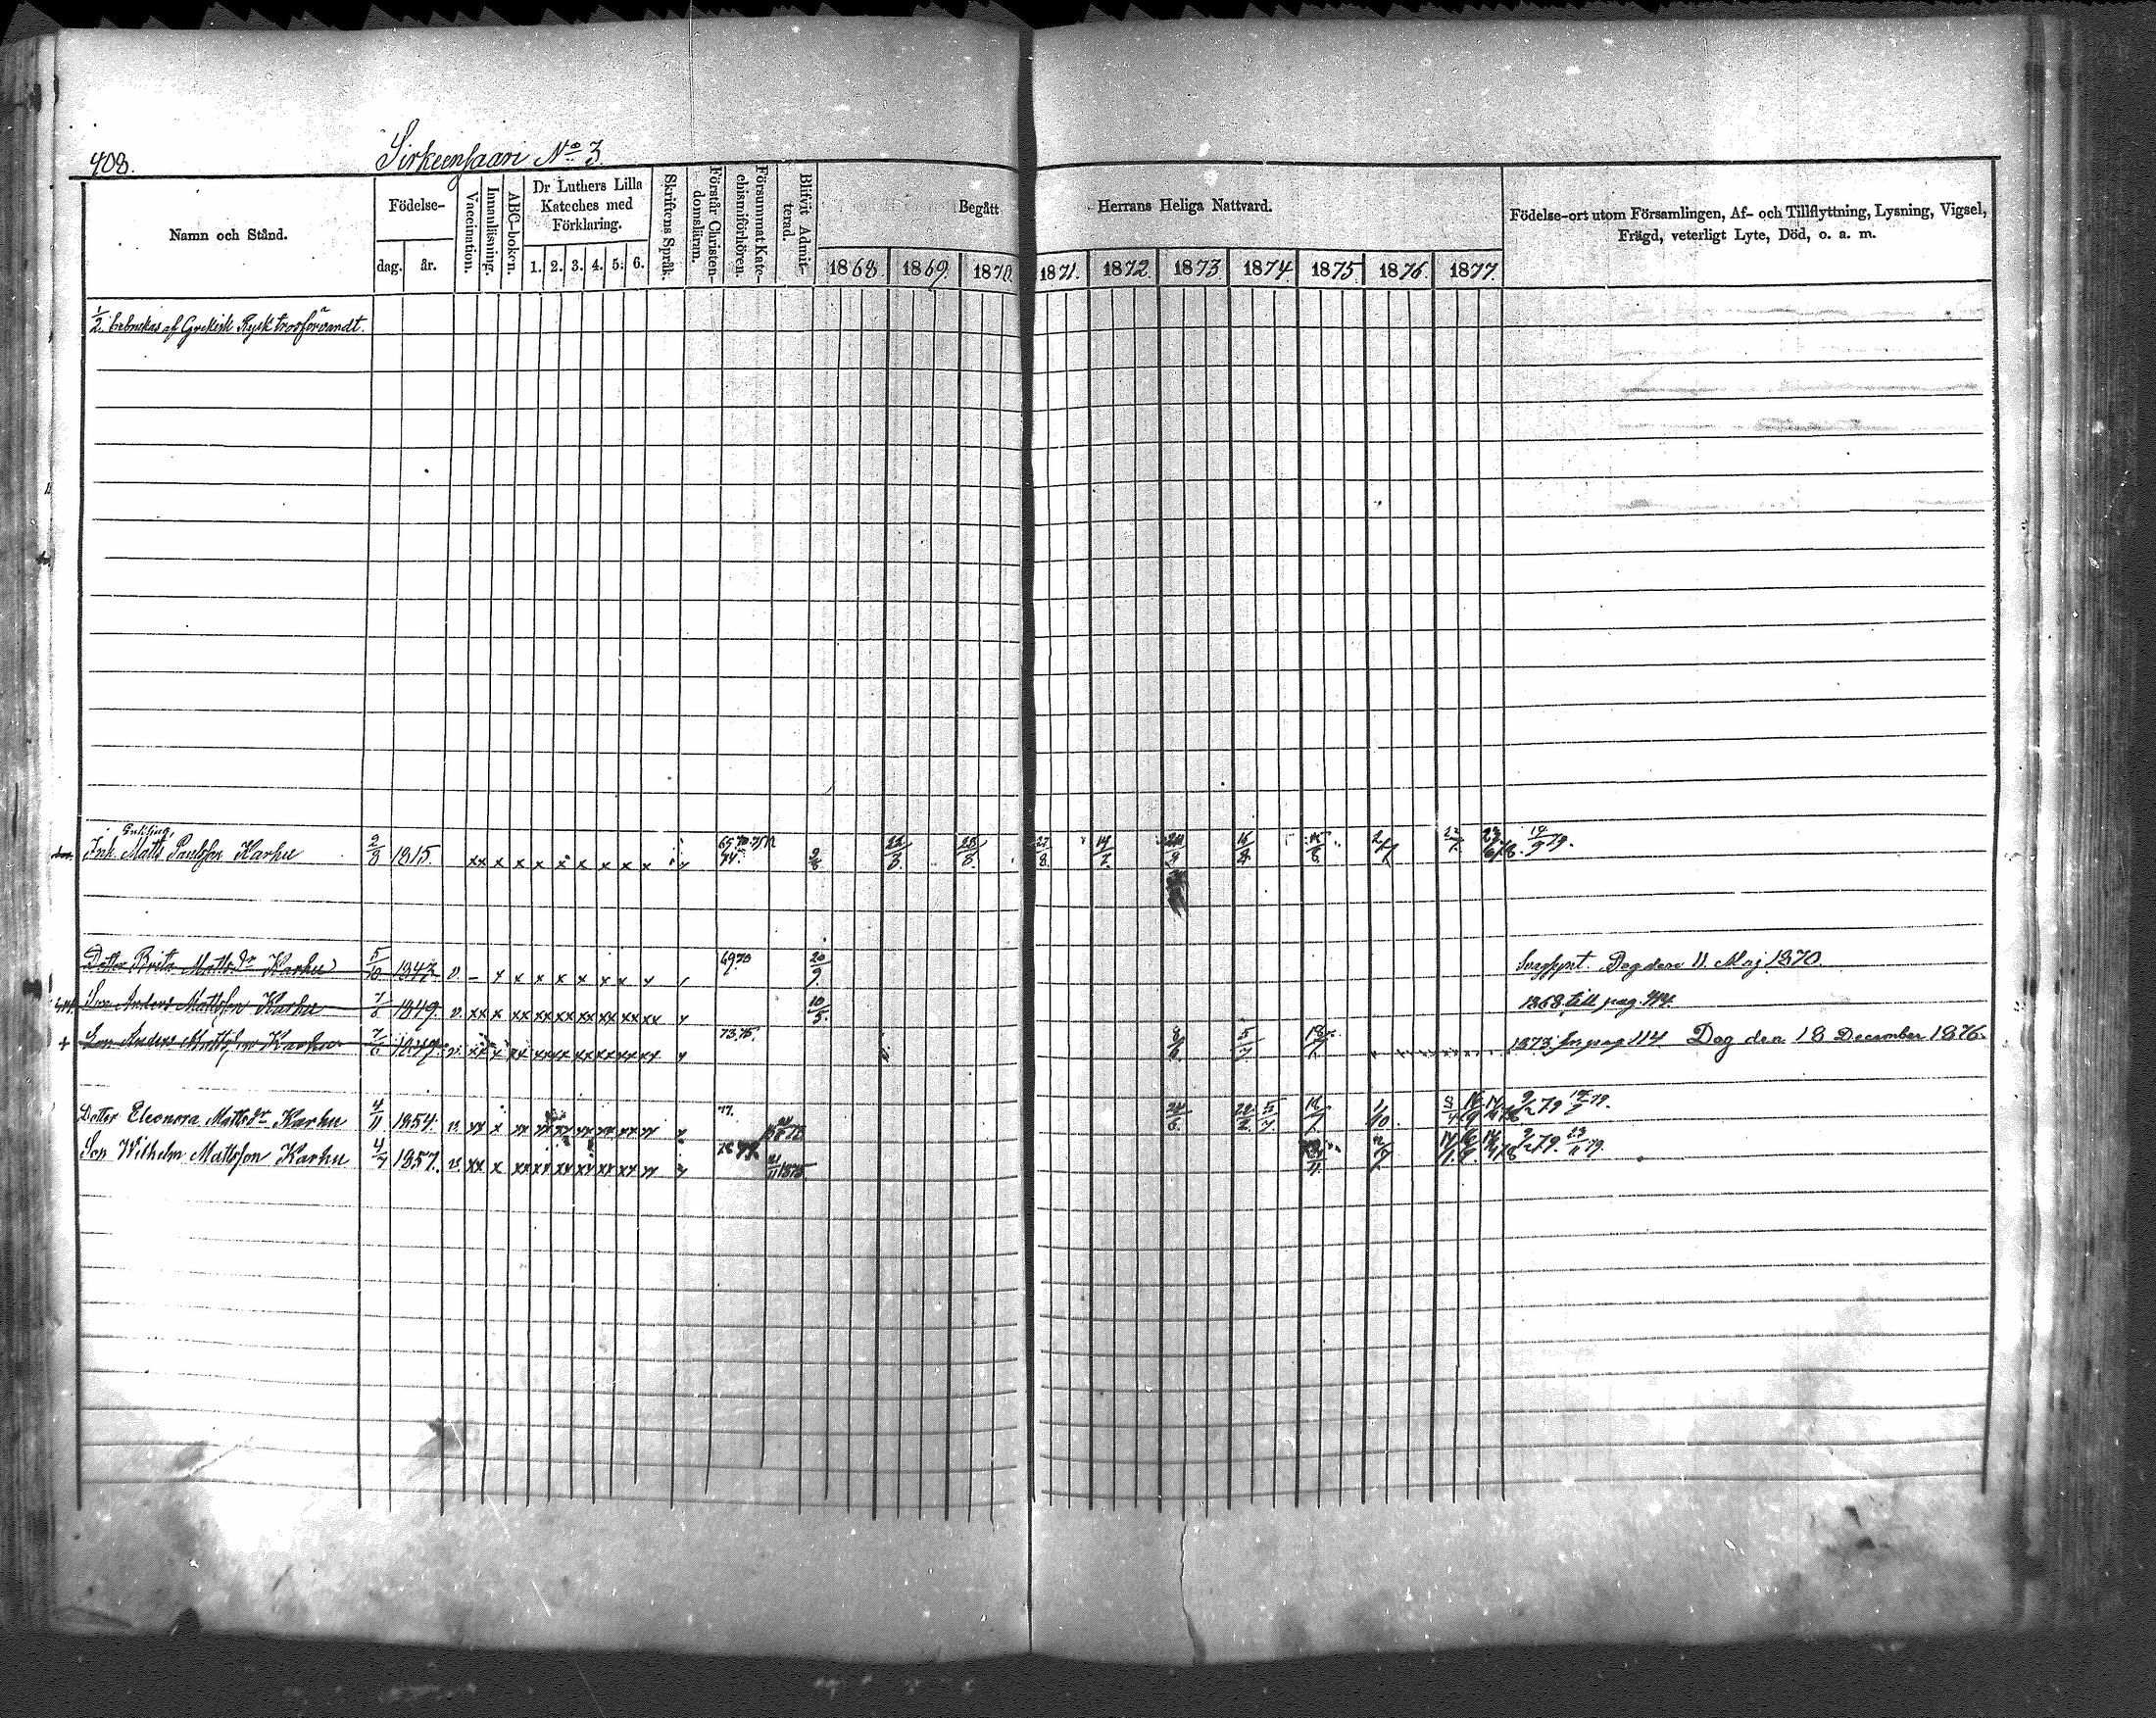 408.
Sirkeensaari No 3.
Namn och Stånd.
Födelse-
dag. år.
Vaccination.
Innanläsning.
ABC-boken.
Dr Luthers Lilla Kateches med Förklaring.
1. 2. 3. 4. 5. 6.
Skriftens Språk.
Förstår Christendomsläran.
Försummat Katechismiförhören.
Blifvit Admitterad.
Begått Herrans Heliga Nattvard.
1868. 1869. 1870. 1871. 1872. 1873. 1874. 1875. 1876. 1877.
Födelse-ort utom Församlingen, Af- och Tillflyttning, Lysning, Vigsel,
Frägd, veterligt Lyte, Död, o. a. m.
1/2 brbrukas af Grekisk Rysk trosförvandt.
Enkling,
Inh. Matts Paulsson Karhu 2/3 1815. xx x x x x x x x x 9/8 27/8 14/2 16/8 14/9 79.
Dotter Brita Mattsdr Karhu 5/10 1843 v. – x x x x x x x 6970 20/9. Dog den 11 Maj 1870.
Son Anders Mattsson Karhu 7/6 1849. v. xx x xx xx xx xx xx xx xx 10/5. 1868 till pag. 114.
+ Son Anders Mattsson Karhu 7/6 1849. v. xx x xx xx xx xx xx xx xx 73.75. 5/7 1873 fr pag 114 Dog den 18 December 1876.
Dotter Eleonora Mattsdr Karhu 4/11 1854. v. xx x xx xx xx xx xx xx xx 77. 24/6 1/10. 9/2 79
Son Wilhelm Mattsson Karhu 4/7 1857. v. xx x xx xx xx xx xx xx xx 21/11 1875. 9/2 79. 23/11 79.